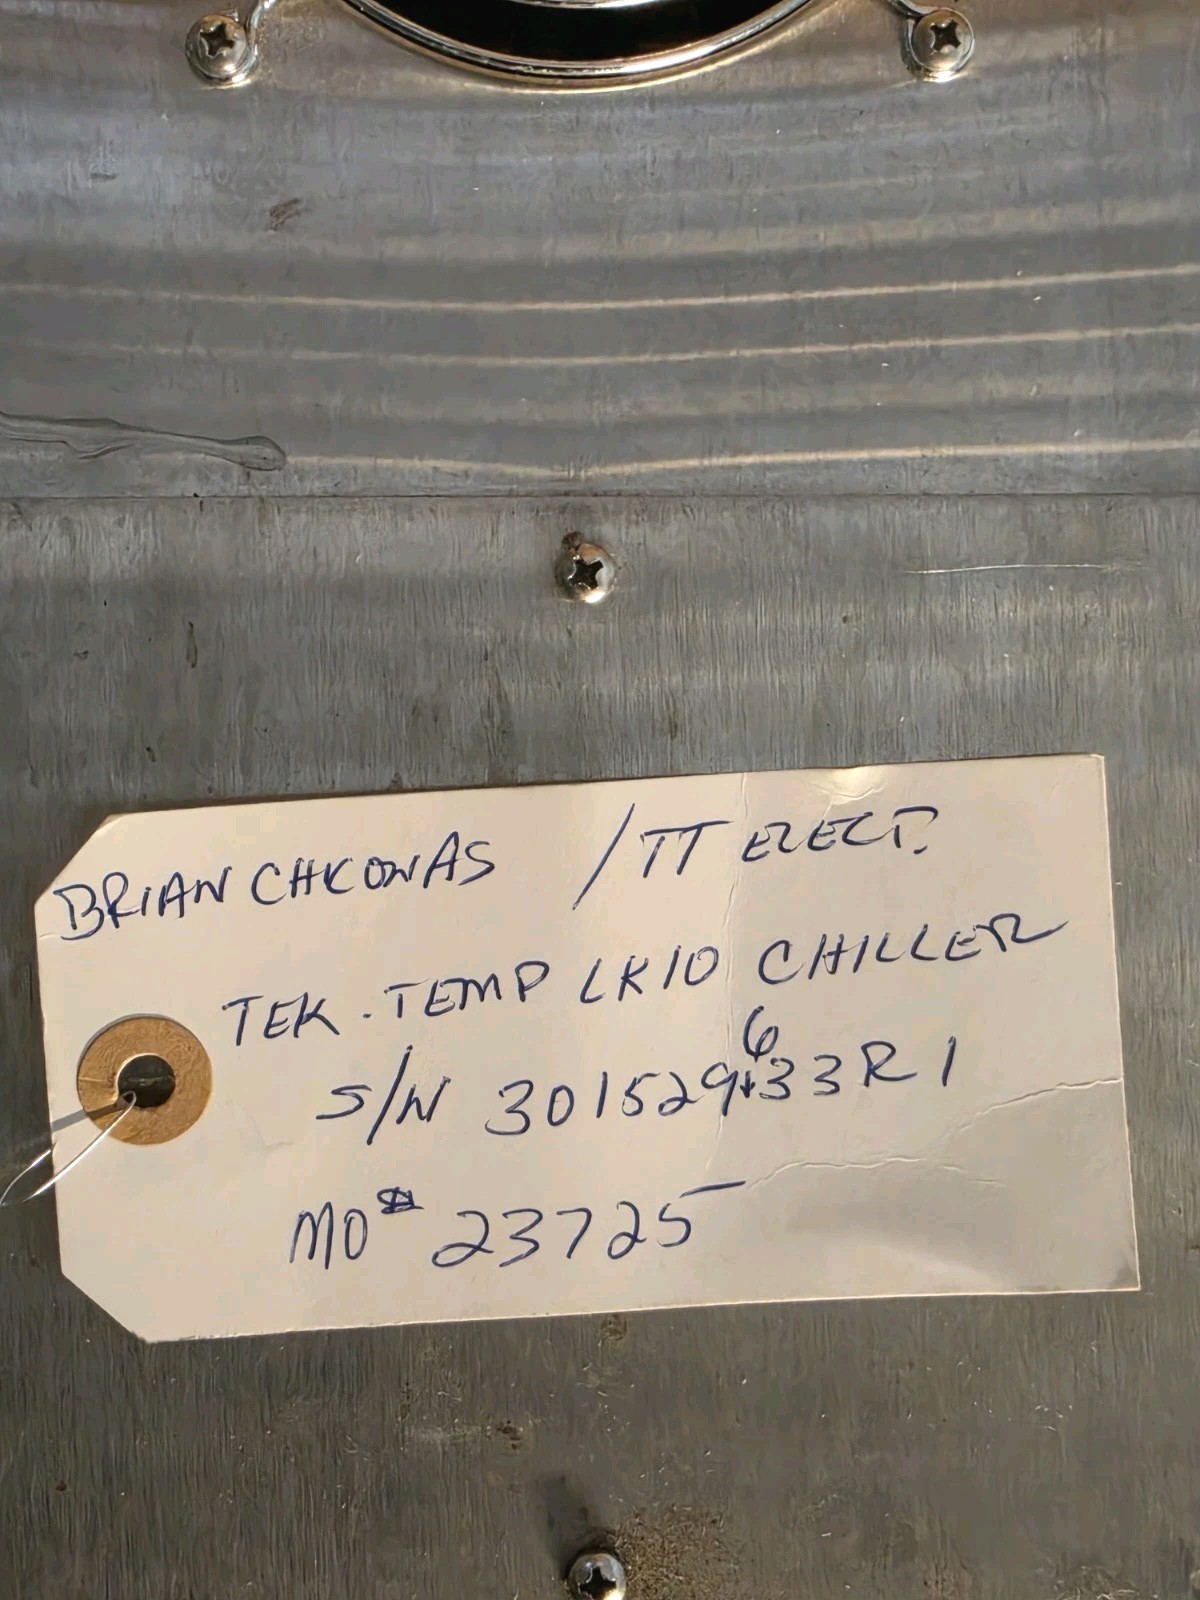 BRIAN CHKOWAS / TT ELECT.
TEK-TEMP LK10 CHILLER
S/N 301529633R1
MO# 23725